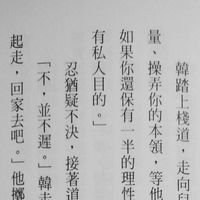 韓踏上棧道，走向兒
量、操弄你的本領，等他
如果你還保有一半的理性
有私人目的。」
忍猶疑不決，接著道
「不，並不遲。」韓走
起走，回家去吧。」他擲